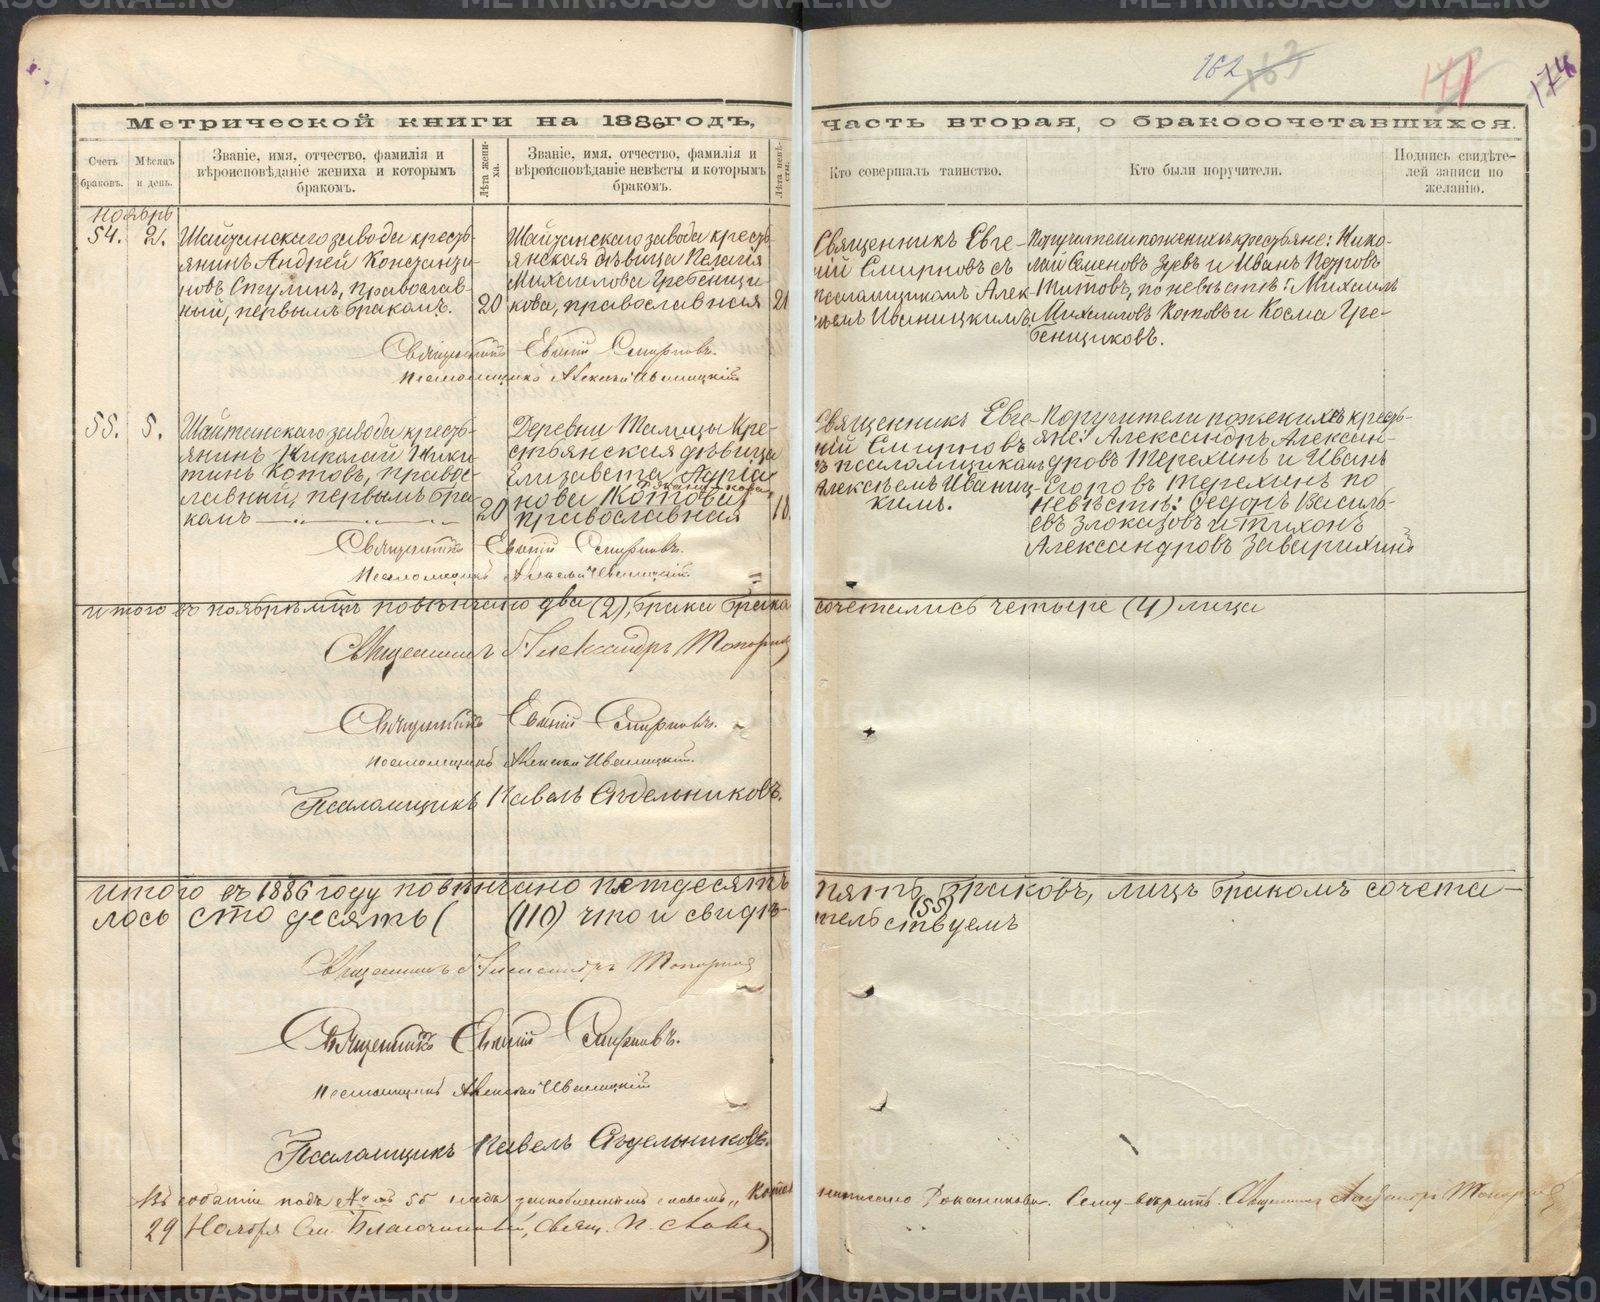 162 163 171 174
Метрической книги на 1886 годъ,
часть вторая, о бракосочетавшихся.
Счетъ браковъ.
Мѣсяцъ и день.
Званіе, имя, отчество, фамилія и
вѣроисповѣданіе жениха и которымъ
бракомъ.
Лѣта жени-
ха.
Званіе, имя, отчество, фамилія и
вѣроисповѣданіе невѣсты и которымъ
бракомъ.
Лѣта невѣ-
сты.
Кто совершалъ таинство.
Кто были поручители.
Подпись свидѣте-
лей записи по
желанію.
ноябрь
54. 2.
Шайтанскаго завода кресть-
янинъ Андрей Константи-
новъ Ступинъ, православ-
ный, первымъ бракомъ.
20
Шайтанскаго завода кресть-
янская дѣвица Пелагія
Михаилова Гребенщи-
кова, православная
21
Священникъ Евге-
ній Смирновъ съ
псаломщикомъ Алек-
сѣемъ Иваницкимъ.
Поручители по женихѣ крестьяне: Нико-
лай Семеновъ Зуевъ и Иванъ Петровъ
Титовъ, по невѣстѣ: Михаилъ
Михаиловъ Котовъ и Косма Гре-
бенщиковъ.
Священникъ Евгеній Смирновъ.
Псаломщикъ Алексѣй Иваницкій
55. 5.
Шайтанскаго завода кресть-
янинъ Николай Ники-
тинъ Котовъ, правос-
лавный, первымъ бра-
комъ
20
Деревни Талицы Кре-
стьянская дѣвица
Елизавета Адріа-
нова Котова
православная
18.
Священникъ Евге-
ній Смирновъ
съ псаломщикомъ
Алексѣемъ Иваниц-
кимъ.
Поручители по женихѣ кресть-
яне: Александръ Алексан-
дровъ Терехинъ и Иванъ
Егоровъ Терехинъ по
невѣстѣ: Федоръ Василь-
евъ Злоказовъ и Тихонъ
Александровъ Заварихинъ
Священникъ Евгеній Смирновъ.
Псаломщикъ Алексѣй Иваницкій
итого въ ноябрѣ мцѣ повѣнчано два (2), брака брако
сочетались четыре (4) лица
Священникъ Александръ Топорковъ
Священникъ Евгеній Смирновъ.
Псаломщикъ Алексѣй Иваницкій.
Псаломщикъ Павелъ Сѣдельниковъ.
итого въ 1886 году повѣнчано пятдесятъ
пять (55) браковъ, лицъ бракомъ сочета-
лось сто десять (
(110) что и свидѣ-
тельствуемъ
Священникъ Александръ Топорковъ
Священникъ Евгеній Смирновъ.
Псаломщикъ Алексѣй Иваницкій
Псаломщикъ Павелъ Сѣдельниковъ.
Въ событіи подъ № 55 надъ заскобленнымъ словомъ „Котова
написано Рожанникова. Сему вѣрить. Священникъ Александръ Топорковъ
29 Ноября См. Благочинный, Свящ. П.
METRIKI.GASO-URAL.RU